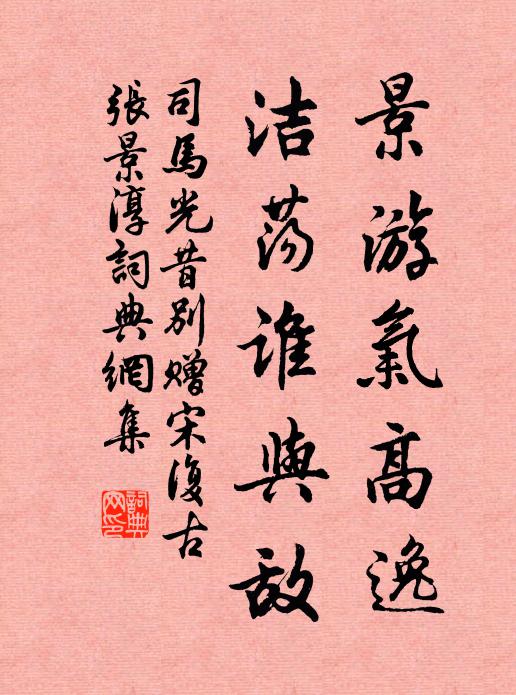 景游氣高逸
洁蕩誰與敵
司馬光昔别贈宋復古
張景淳詞典網集
詞典网印